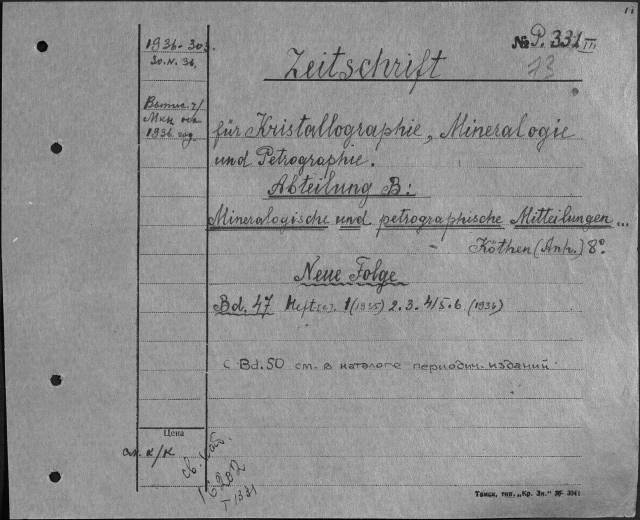 1936-303.
30.IV.36.
№ P. 331 III
73
Zeitschrift
1936 год.
für Kristallographie, Mineralogie
und Petrographie.
Abteilung B:
Mineralogische und petrographische Mitteilungen...
Köthen (Anh.) 8°.
Neue Folge
Bd. 47 Heft(e). 1 (1935) 2. 3. 4/5. 6. (1936)
с Bd. 50 см. в каталоге периодич. изданий
Цена
ал. к/к
16202
Т 1331
Томск, тип. „Кр. Зн." № 3041